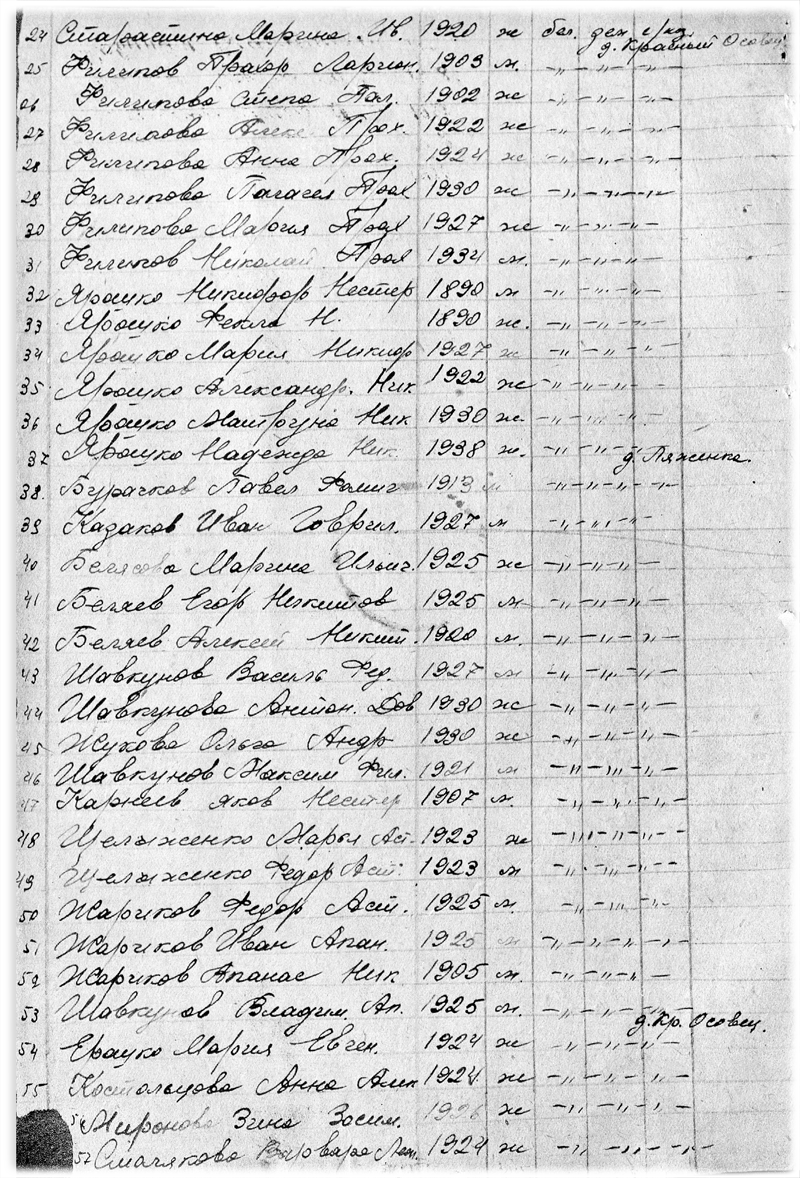 24 Старастина Марина Ив. 1920 ж бел. ден с/хоз
д. Красный Осовец
25 Филипов Прахор Ларион. 1903 м. -"-"-"-
26 Филипова Степа Пал. 1902 ж -"-"-"-
27 Филипова Алекс Прох. 1922 ж -"-"-"-
28 Филипова Анна Прох. 1924 ж -"-"-"-
29 Филипова Пагасея Прох 1930 ж -"-"-"-
30 Филипова Мария Прох 1927 ж -"-"-"-
31 Филипов Николай Прох 1934 м. -"-"-"-
32 Ярошко Никифор Нестер 1890 м -"-"-"-
33 Ярошко Фекла Н. 1890 ж. -"-"-"-
34 Ярошко Мария Никиф 1927 ж -"-"-"-
35 Ярошко Александр. Ник 1922 ж -"-"-"-
36 Ярошко Матруна Ник 1930 ж. -"-"-"-
37 Ярошко Надежда Ник. 1938 ж. -"-"-"-
д. Ляженка.
38. Бурачков Павел Фомич 1913 м -"-"-"-
39 Казаков Иван Говрил. 1927 м -"-"-"-
40 Белясова Марина Ильич. 1925 ж -"-"-"-
41 Беляев Егор Никитов 1925 м -"-"-"-
42 Беляев Алексей Никит. 1920 м. -"-"-"-
43 Шавкунов Василь Фед. 1927 м -"-"-"-
44 Шавкунова Антон. Дов 1930 ж -"-"-"-
45 Жукова Ольга Андр 1930 ж -"-"-"-
46 Шавкунов Максим Фил. 1921 м -"-"-"-
47 Карнеев яков Нестер 1907 м. -"-"-"-
48 Щелыженко Марья Аст. 1923 ж -"-"-"-
49 Щелыженко Федор Аст. 1923 м -"-"-"-
50 Жариков Федор Аст. 1925 м. -"-"-"-
51 Жариков Иван Апан. 1925 м -"-"-"-
52 Жариков Апанас Ник 1905 м. -"-"-"-
53 Шавкунов Владим. Ап. 1925 м. -"-"-"-
д. Кр. Осовец.
54 Ерашко Мария Евген. 1924 ж -"-"-"-
55 Костольцова Анна Алек 1924 ж -"-"-"-
Миронова Зина Зосим. 1926 ж -"-"-"-
57 Смачякова Варвара 1924 ж -"-"-"-